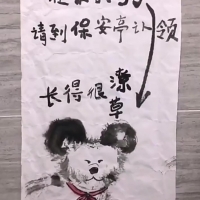 请到保安亭认领
长得很潦草